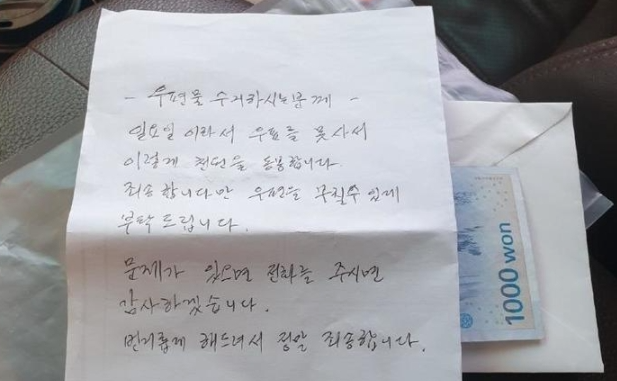 - 우편물 수거하시는분께 -
일요일이라서 우표를 못사서
이렇게 천원을 동봉합니다
죄송합니다만 우편을 붙칠수 있게
부탁드립니다.
문제가 있으면 전화를 주시면
감사하겠습니다.
번거롭게 해드려서 정말 죄송합니다.
1000 won